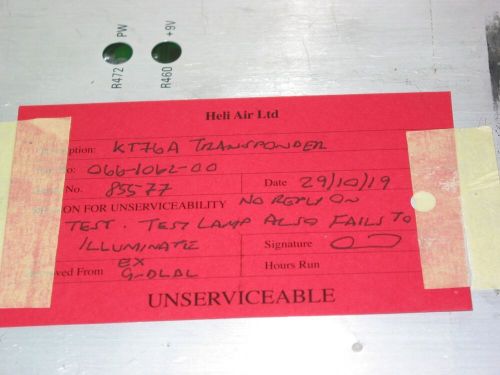 R472 PW
R460 +9V
Heli Air Ltd
ption: KT76A TRANSPONDER
o: 066-1062-00
No. 85577 Date 29/10/19
ON FOR UNSERVICEABILITY NO REPLY ON
TEST. TEST LAMP ALSO FAILS TO
ILLUMINATE Signature
ved From EX G-DLDL Hours Run
UNSERVICEABLE